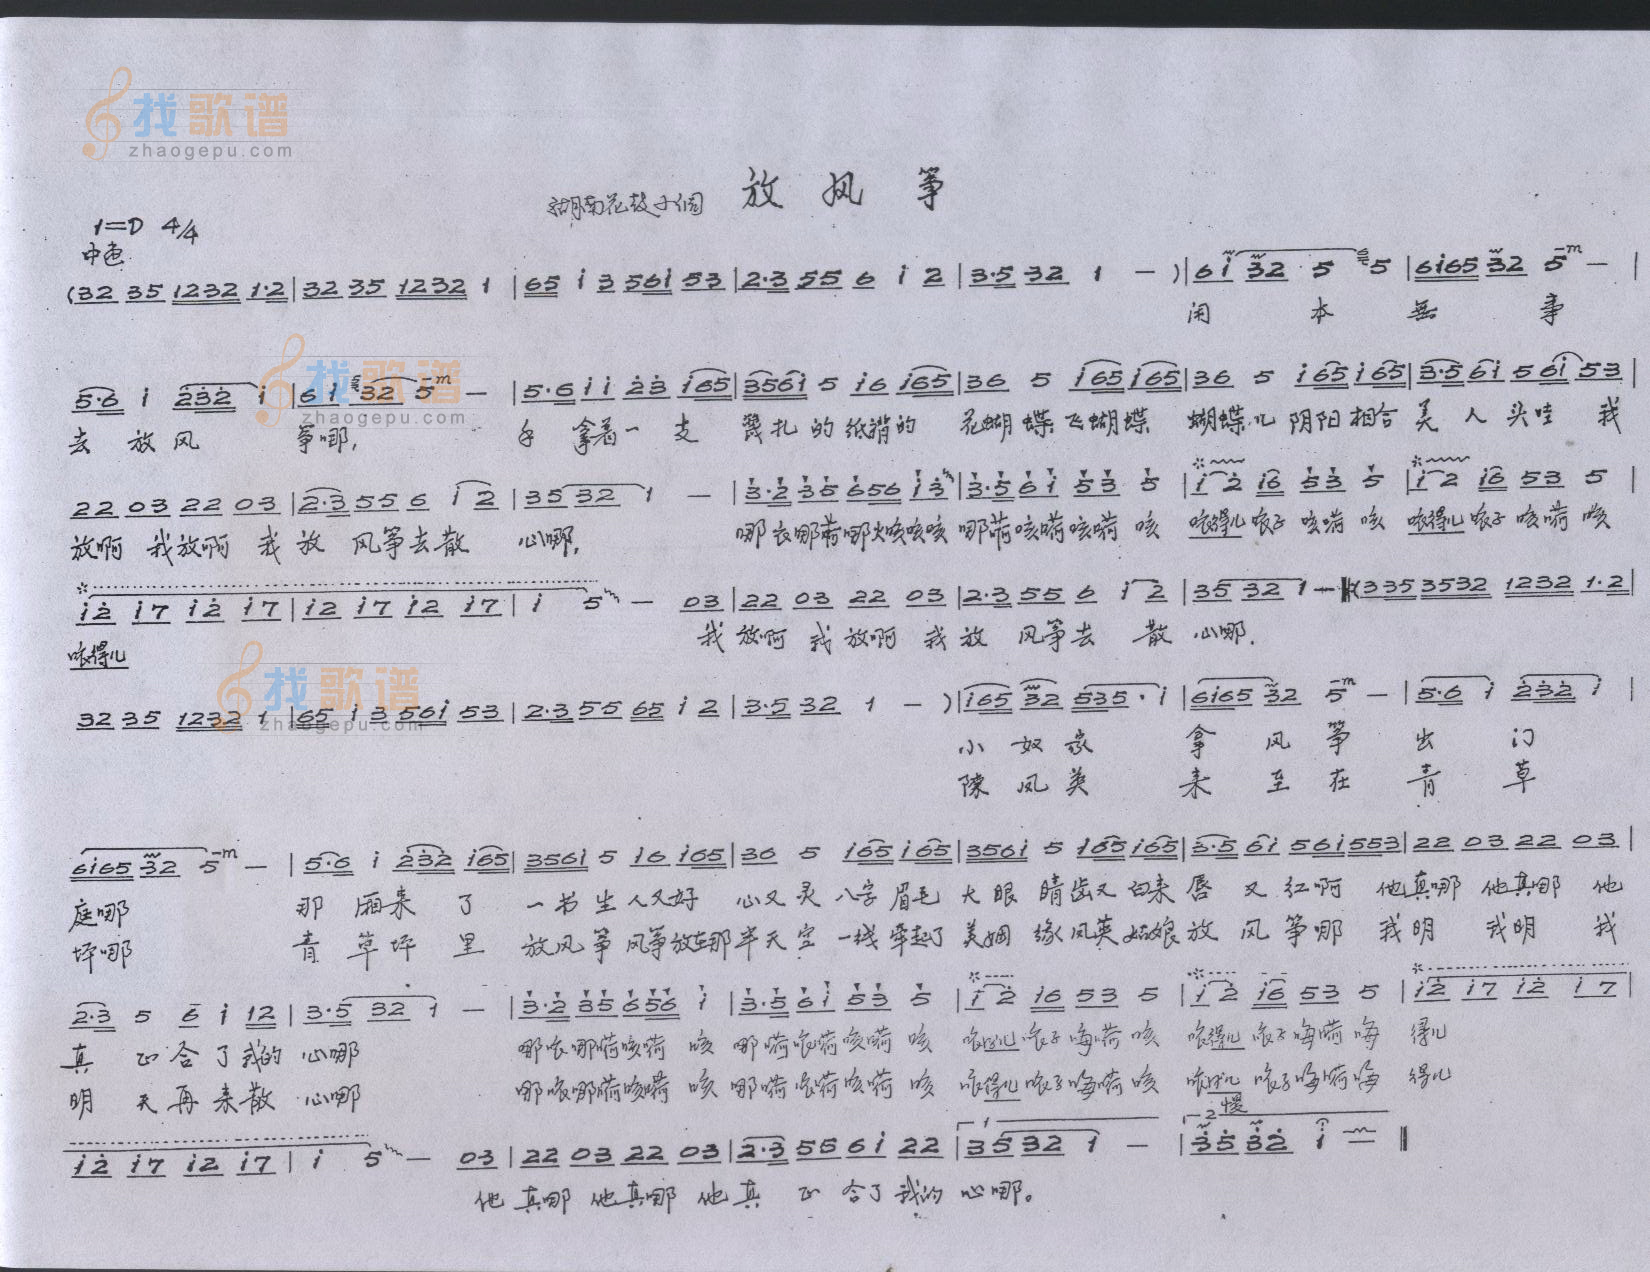 找歌谱
zhaogepu.com
湖南花鼓小调 放风筝
1=D 4/4
中速
(32 35 1232 1·2|32 35 1232 1|65 i 3 56i 53|2·3 55 6 i 2|3·5 32 1 —)|6i 32 · 5 5|6i65 32 5 —|
闲 本 無 事
5·6 i 232 i|6i 32 5 —|5·6 i i 23 i65|356i 5 i6 i65|36 5 i65 i65|36 5 i65 i65|3·5 6i 5 6i 53|
去 放风 筝哪, 手 拿着一 支 篾扎的纸褙的 花蝴蝶飞蝴蝶 蝴蝶儿阴阳相合美 人 头哇 我
找歌谱
zhaogepu.com
22 03 22 03|2·3 55 6 i 2|35 32 1 —|3·2 35 656 i3|3·5 6i 53 5|i 2 i6 53 5|i 2 i6 53 5|
放啊 我放啊 我 放 风筝去散 心哪, 哪衣哪荷哪火咳咳咳 哪荷咳嗬咳嗬 咳 咿得儿咿子 咳嗬 咳 咿得儿咿子 咳嗬 咳
i2 i7 i2 i7|i2 i7 i2 i7|i 5 — 03|22 03 22 03|2·3 55 6 i 2|35 32 1 —‖(335 3532 1232 1·2|
咿得儿 我 放啊 我 放啊 我 放 风筝去 散 心哪.
找歌谱
zhaogepu.com
32 35 1232 1|65 i 3 56i 53|2·3 55 65 i 2|3·5 32 1 —)|i65 32 535 · i|6i65 32 5 —|5·6 i 232 i|
小 奴 家 拿 风 筝 出 门
陳 凤 英 来 至 在 青 草
6i65 32 5 —|5·6 i 232 i65|356i 5 i6 i65|36 5 i65 i65|356i 5 i65 i65|3·5 6i 56i 553|22 03 22 03|
庭哪 那 厢来 了 一书 生人又好 心又 灵 八字 眉毛 大 眼 睛齿又 白来 唇 又 红啊 他真哪 他真哪 他
坪哪 青 草坪 里 放风 筝 风筝放在那半天 空 一线 牵起了 美姻 缘凤英姑娘放 风 筝哪 我明 我明 我
2·3 5 6 i 12|3·5 32 1 —|3·2 35 656 i|3·5 6i 53 5|i 2 i6 53 5|i 2 i6 53 5|i2 i7 i2 i7|
真 正 合了我的 心哪 哪咿哪荷咳嗬 咳 哪嗬咿荷咳嗬 咳 咿得儿咿子嗨嗬 咳 咿得儿咿子嗨嗬 嗨 得儿
明 天 再 来散 心哪 哪咿哪荷咳嗬 咳 哪嗬咿荷咳嗬 咳 咿得儿咿子嗨嗬 咳 咿得儿咿子嗨嗬 嗨 得儿
慢
i2 i7 i2 i7|i 5 — 03|22 03 22 03|2·3 55 6i 22|35 32 1 —|35 32 i —‖
他 真哪 他真哪 他真 正 合了 我的 心哪。